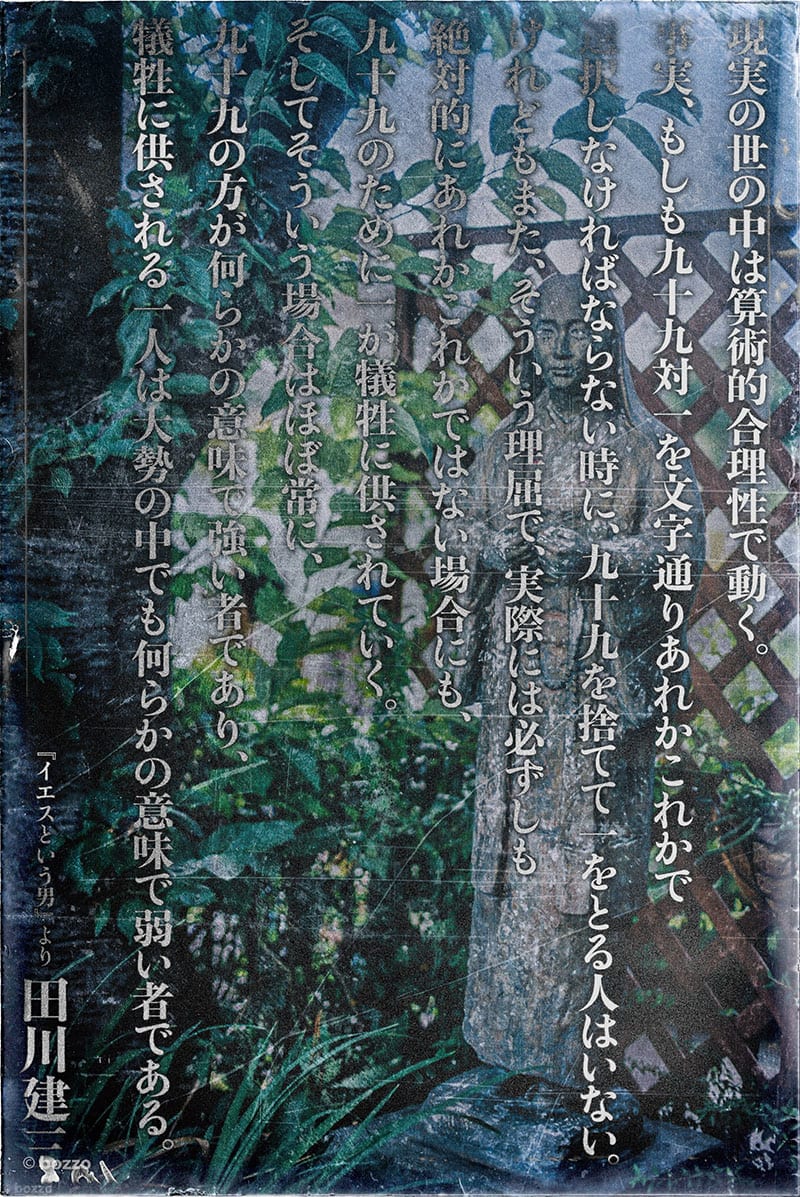 現実の世の中は算術的合理性で動く。
事実、もしも九十九対一を文字通りあれかこれかで
選択しなければならない時に、九十九を捨てて一をとる人はいない。
けれどもまた、そういう理屈で、実際には必ずしも
絶対的にあれかこれかではない場合にも、
九十九のために一が犠牲に供されていく。
そしてそういう場合はほぼ常に、
九十九の方が何らかの意味で強い者であり、
犠牲に供される一人は大勢の中でも何らかの意味で弱い者である。
『イエスという男』より
田川建三
© bozzo